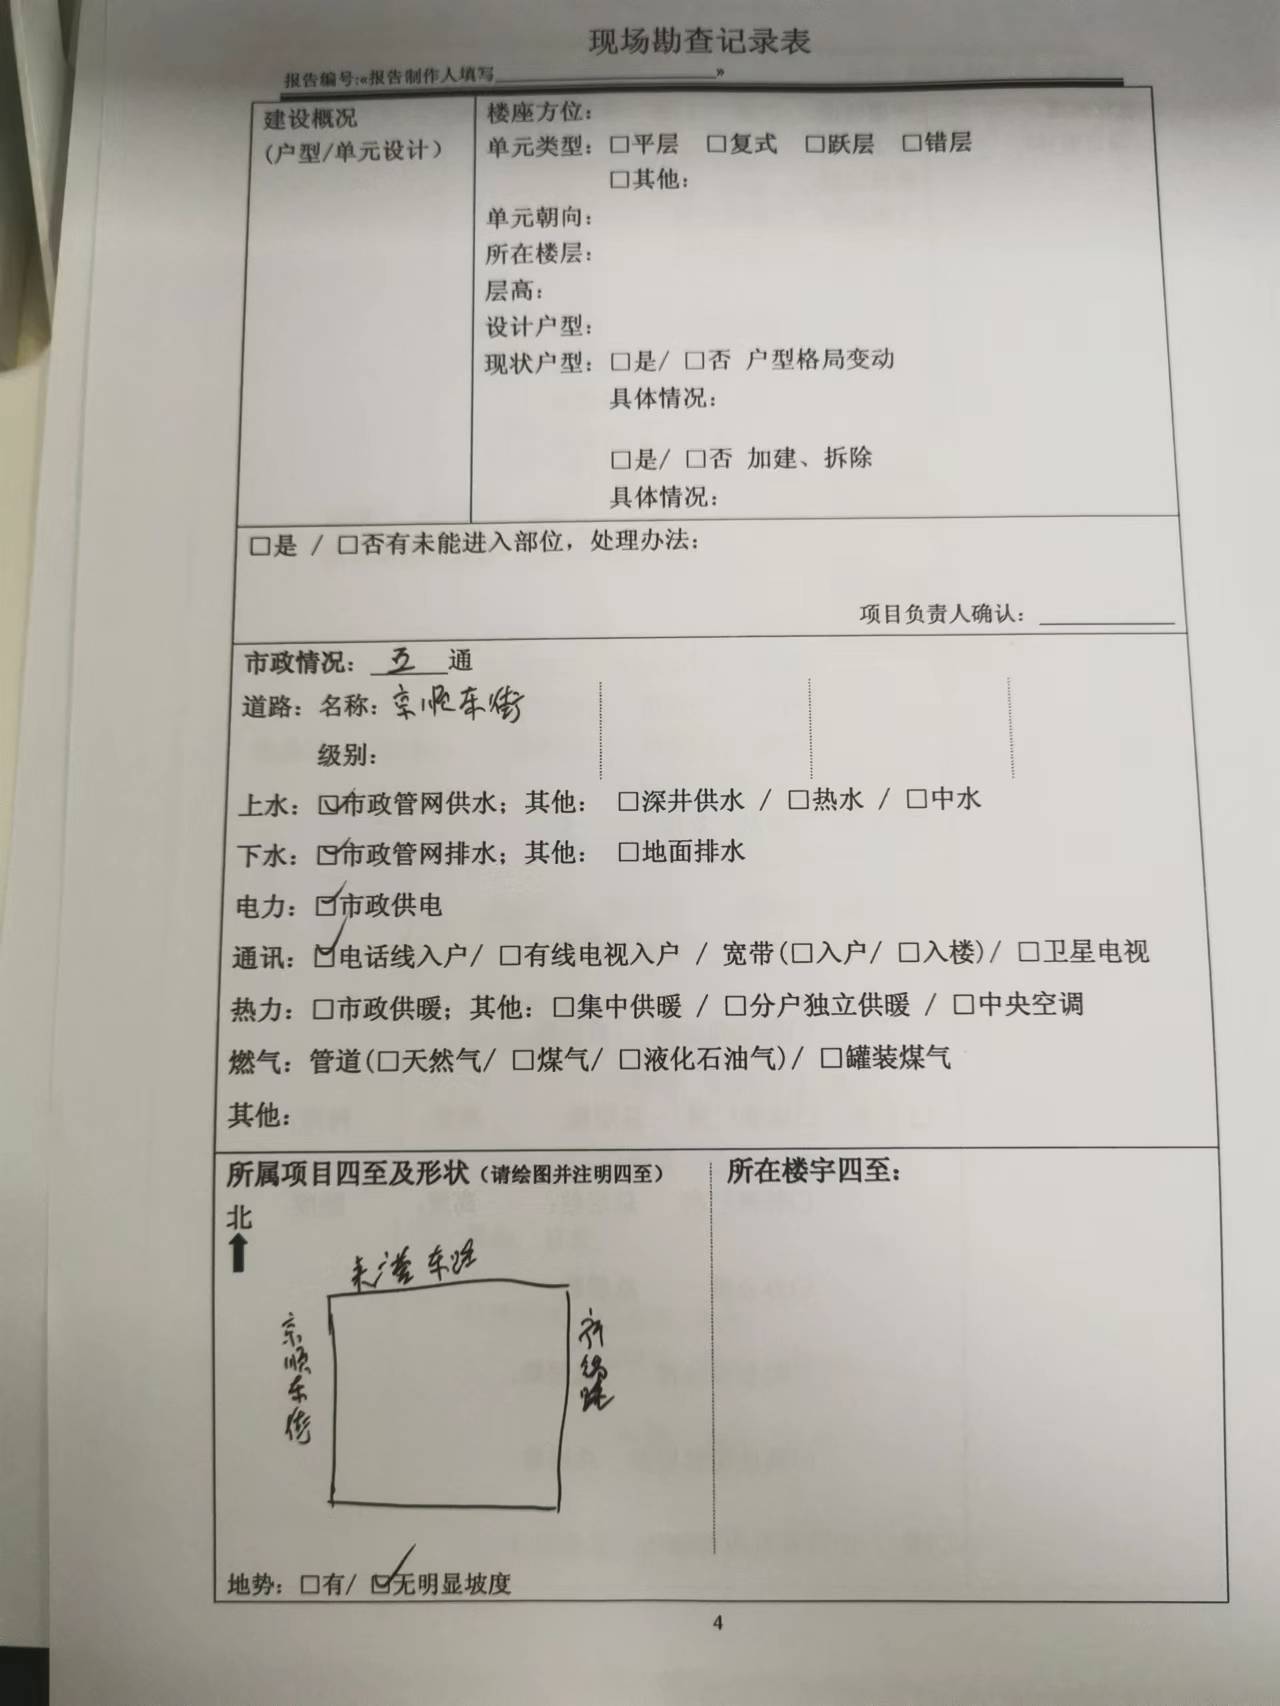 现场勘查记录表
报告编号:«报告制作人填写»
建设概况
(户型/单元设计)
楼座方位：
单元类型：□平层 □复式 □跃层 □错层
□其他：
单元朝向：
所在楼层：
层高：
设计户型：
现状户型：□是/ □否 户型格局变动
具体情况：
□是/ □否 加建、拆除
具体情况：
□是 / □否有未能进入部位，处理办法：
项目负责人确认：
市政情况：五通
道路：名称：京顺东街
级别：
上水：☑市政管网供水；其他： □深井供水 / □热水 / □中水
下水：☑市政管网排水；其他： □地面排水
电力：☑市政供电
通讯：☑电话线入户/ □有线电视入户 / 宽带(□入户/ □入楼)/ □卫星电视
热力：□市政供暖；其他：□集中供暖 / □分户独立供暖 / □中央空调
燃气：管道(□天然气/ □煤气/ □液化石油气)/ □罐装煤气
其他：
所属项目四至及形状（请绘图并注明四至）
所在楼宇四至：
北
来溢东路
京顺东街
地势：□有/ ☑无明显坡度
4